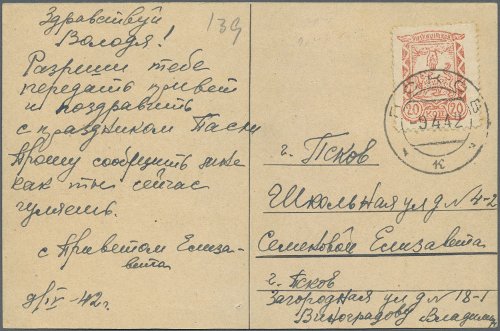 Здравствуй
Володя!
Разреши тебе
передать привет
и поздравить
с праздником Пасхи
Прошу сообщить мне
как ты сейчас
гуляешь.
с Приветом Елиза-
вета
8/IV - 42 г.
139
20 20
9.4.42
к
г. Псков
Школьная ул д № 4-2
Семеновой Елизавета
г. Псков
Загородная ул д № 18-1
Виноградову Владимир